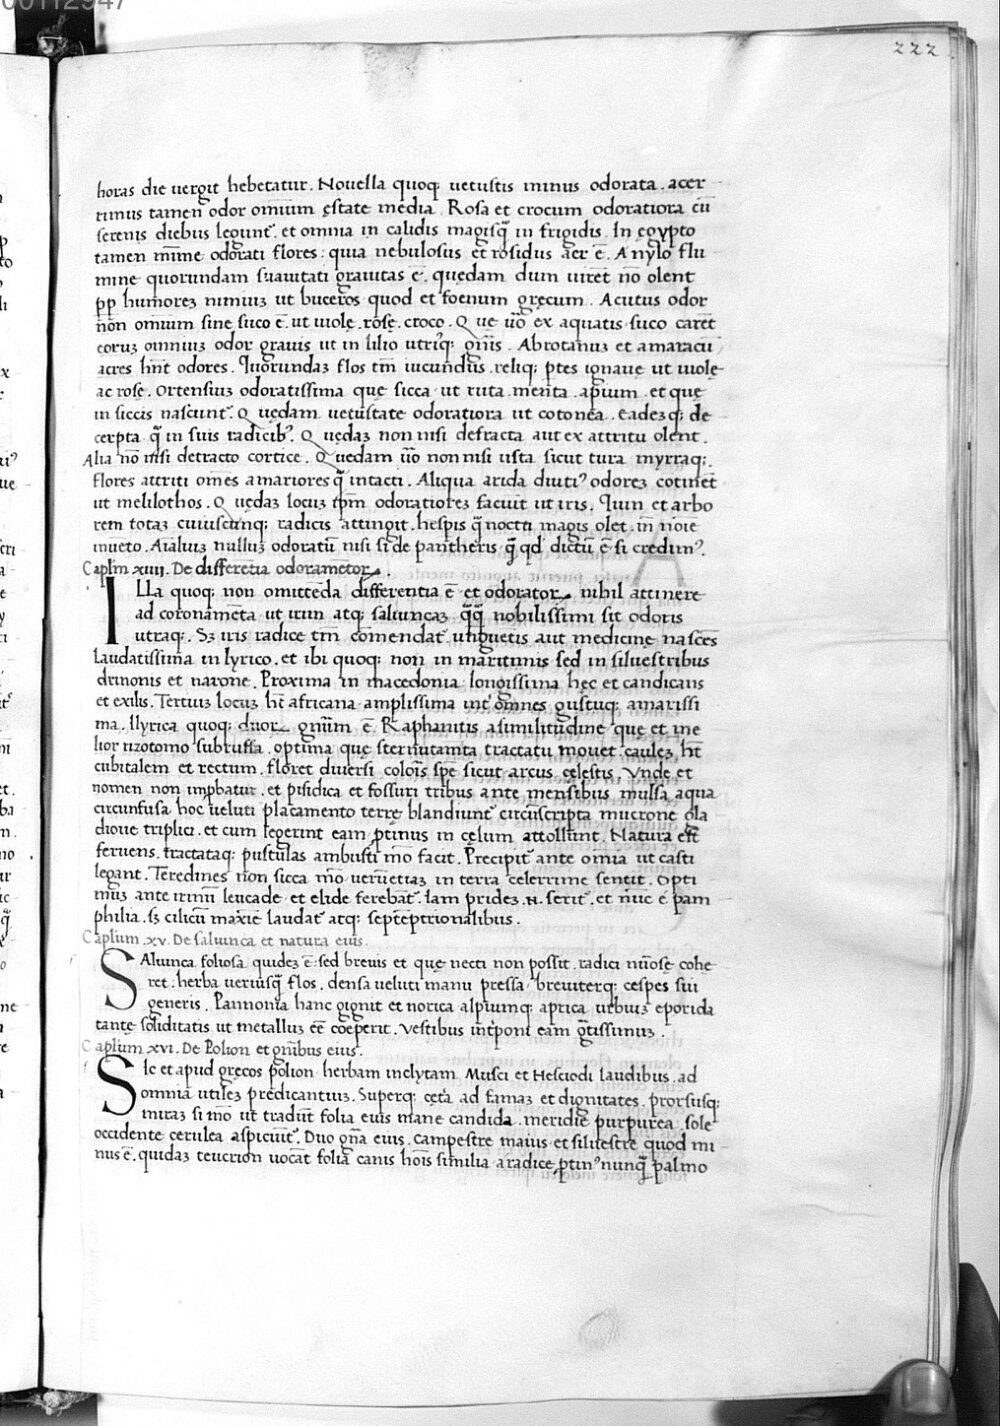 00112947
222
horas die uergit hebetatur. Nouella quoqꝫ uetustis minus odorata. acer
rimus tamen odor omnium ęstate media. Rosa et crocum odoratiora cū
serenis diebus legunt᷑. et omnia in calidis magisq̄ in frigidis. In egypto
tamen mīme odorati flores: quia nebulosus et rosidus aer ē. A nylo flu
mine quorundam suauitati grauitas ē. quędam dum uirēt nō olent
pp̄ humoreꝫ nimiuꝫ ut buceros quod et foenum gręcum. Acutus odor
non omnium sine suco ē. ut uiolę. rosę. croco. Que ūo ex aquatis suco carēt
eoruꝫ omniuꝫ odor grauis ut in lilio utriꝰqꝫ gn̄is. Abrotanuꝫ et amaracū
acres hn̄t odores. Quorundaꝫ flos tm̄ iucundus. reliqꝫ ꝑtes ignauę ut uiolę
ac rosę. Ortensiuꝫ odoratissima quę sicca ut ruta menta. apium. et quę
in siccis nascunt᷑. Quędam uetustate odoratiora ut cotonea. eadeꝫqꝫ de
cerpta q̄ in suis radicibꝰ. Quędaꝫ non nisi defracta aut ex attritu olent.
Alia nō nisi detracto cortice. Quedam ūo non nisi usta sicut tura myrraqꝫ.
Flores attriti om̄es amariores q̄ intacti. Aliqua arida diutiꝰ odoreꝫ cōtinēt
ut melilothos. Quędaꝫ locuꝫ ip̄m odoratioreꝫ facuit ut iris. Quin et arbo
rem totaꝫ cuiuscunqꝫ radicis attingit. hespis q̄ noctu magis olet. in noīe
inuēto. Aīaliuꝫ nulluꝫ odoratū nisi si de pantheris q̄ qd̄ dictū ē si credimꝰ.
Caplm xiiii. De differētia odoramētoꝝ.
Illa quoqꝫ non omittēda differentia ē et odoratoꝝ nihil attinere
ad coronamēta ut irim atqꝫ saliuncaꝫ q̄q̄ nobilissimi sit odoris
utraqꝫ. Sꝫ iris radice tm̄ cōmendat᷑ unguētis aut medicinę nascēs
Laudatissima in lyrico. et ibi quoqꝫ non in maritimis sed in siluestribus
drinonis et narone. Proxima in macedonia longissima hęc et candicans
et exilis. Tertiuꝫ locuꝫ ht̄ africana amplissima int᷑ omnes gustuqꝫ amarissi
ma. Ilyrica quoqꝫ duoꝝ gn̄um ē. Raphanitis a similitudine que et me
lior rizotomo subruffa. optima quę sternutamta tractatu mouet. cauleꝫ ht̄
cubitalem et rectum. floret diuersi coloīs spē sicut arcus cęlestis. Vnde et
nomen non imꝓbatur. et pisidica et fossuri tribus ante mensibus mulsa aqua
circunfusa hoc ueluti placamento terrę blandiunt᷑ circūscripta mucrone gla
dioue triplici. et cum legerint eam ꝓtinus in cęlum attollunt. Natura est
feruens. tractataqꝫ pustulas ambusti mō facit. Pręcipit᷑ ante omīa ut casti
legant. Teredines non sicca mō ueruetiaꝫ in terra celerrime sentit. Opti
muꝫ ante irinū leucade et elide ferebāt᷑. Iam prideꝫ .n. serit᷑. et nūc ē pam
philia. sꝫ cilicū maxīe laudat᷑ atqꝫ septēptrionalibus.
Caplum .xv. De saliunca et natura eius.
Saliunca foliosa quideꝫ ē: sed breuis et quę necti non possit. radici nūosę cohe
ret: herba ueriusq̄ flos. densa ueluti manu pressa breuiterqꝫ cespes sui
generis. Pannonia hanc gignit et norica alpiumqꝫ aprica. urbiuꝫ eporida
tantę soliditatis ut metalluꝫ eē coeperit. Vestibus int᷑poni eam g̃tissimuꝫ.
Caplum .xvi. De Polion et gn̄ibus eius.
Sic et apud gręcos polion herbam inclytam Musęi et Hesciodi laudibus. ad
somnia utileꝫ prędicantiuꝫ. Superqꝫ cęta ad famaꝫ et dignitates. prorsusqꝫ
miraꝫ si mō ut tradūt folia eius mane candida. meridie purpurea. sole
occidente cerulea aspiciunt᷑. Duo gn̄a eius. campestre maius et siluestre quod mi
nus ē. quidaꝫ teucrion uocāt folia canis hoīs similia a radice ꝓtinꝰ nunq̄ palmo